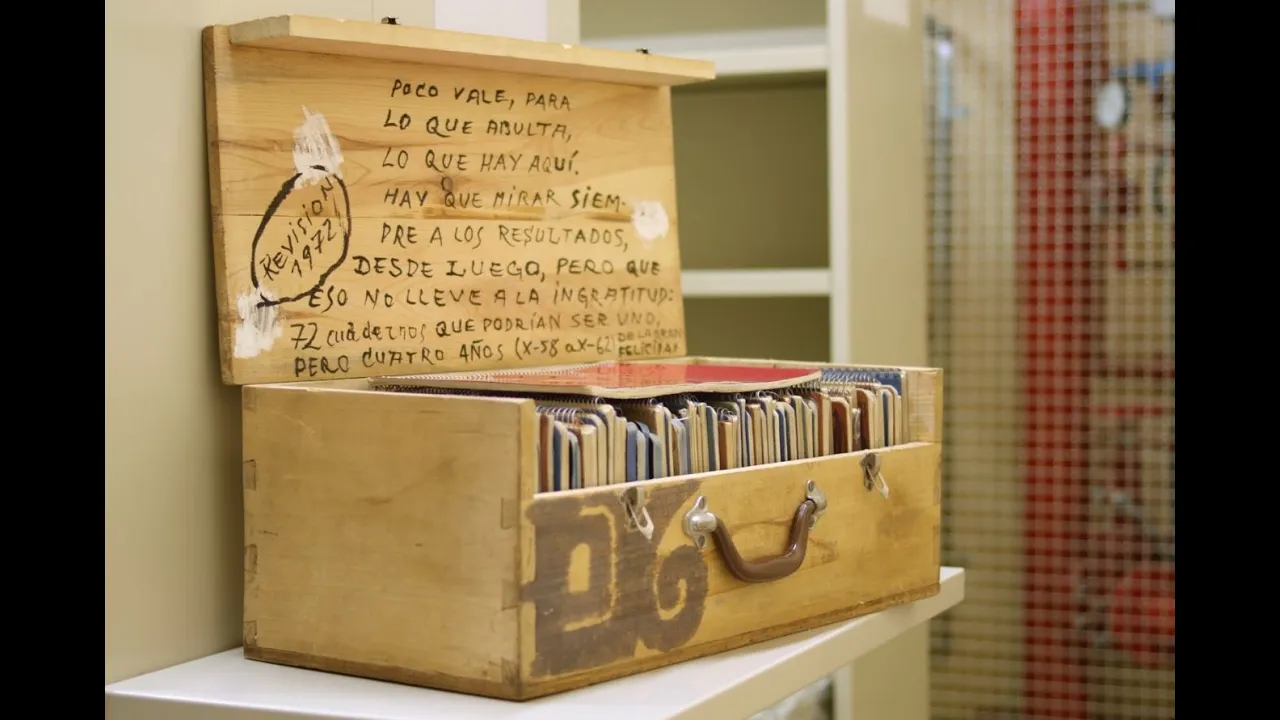 POCO VALE, PARA
LO QUE ABULTA,
LO QUE HAY AQUÍ.
HAY QUE MIRAR SIEM-
PRE A LOS RESULTADOS,
DESDE LUEGO, PERO QUE
ESO NO LLEVE A LA INGRATITUD:
72 cuadernos QUE PODRÍAN SER UNO,
PERO CUATRO AÑOS (X-58 a X-62) DE LA GRAN
FELICIDAD
REVISION
1972